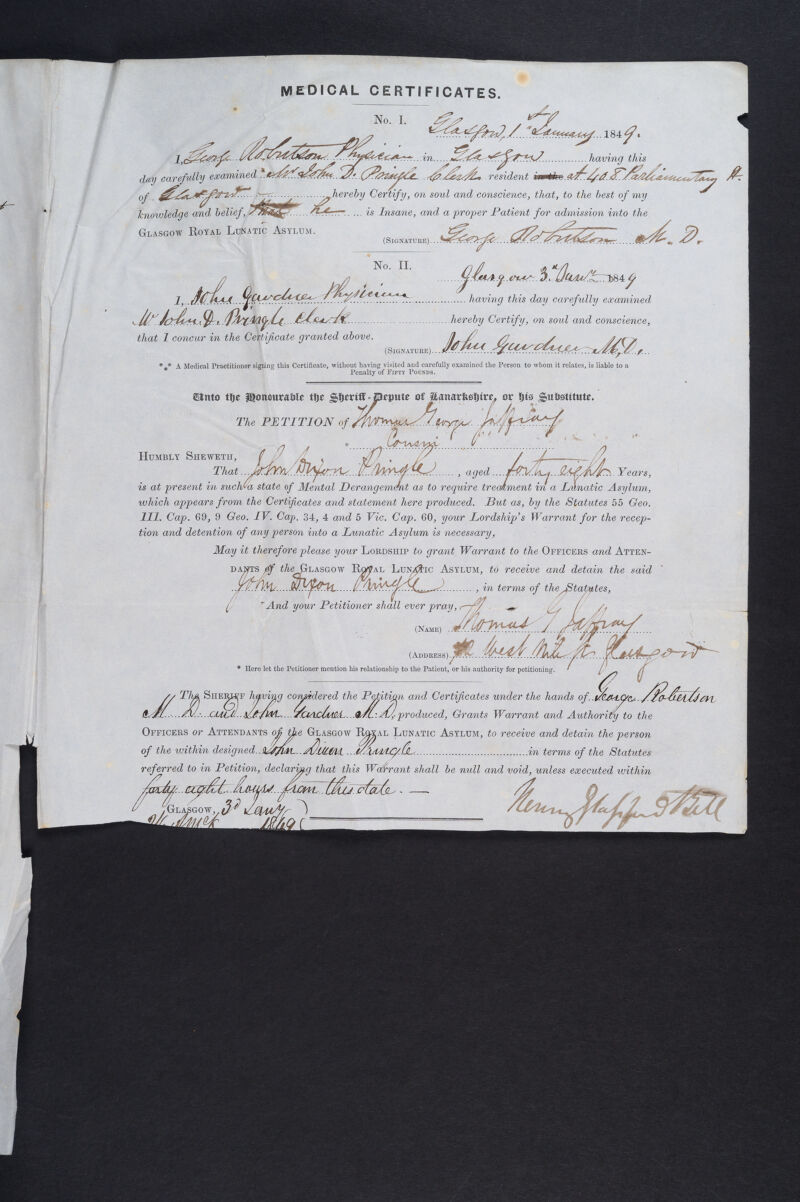 MEDICAL CERTIFICATES.
No. I.
Glasgow, 1st January 1849.
I, George Robertson Physician in Glasgow having this
day carefully examined Mr John D. Pringle Clerk resident in the at 408 Parliamentary
of Glasgow hereby Certify, on soul and conscience, that, to the best of my
knowledge and belief, that he is Insane, and a proper Patient for admission into the
GLASGOW ROYAL LUNATIC ASYLUM.
(SIGNATURE) George Robertson M. D.
No. II.
Glasgow 3d Jany 1849
I, John Gardner Physician having this day carefully examined
Mr John D. Pringle Clerk hereby Certify, on soul and conscience,
that I concur in the Certificate granted above.
(SIGNATURE) John Gardner M.D.
*** A Medical Practitioner signing this Certificate, without having visited and carefully examined the Person to whom it relates, is liable to a
Penalty of FIFTY POUNDS.
Unto the Honourable the Sheriff-Depute of Lanarkshire, or his Substitute.
The PETITION of Thomas George Jaffray
Cousin
HUMBLY SHEWETH,
That John Dixon Pringle, aged forty eight Years,
is at present in such a state of Mental Derangement as to require treatment in a Lunatic Asylum,
which appears from the Certificates and statement here produced. But as, by the Statutes 55 Geo.
III. Cap. 69, 9 Geo. IV. Cap. 34, 4 and 5 Vic. Cap. 60, your Lordship's Warrant for the recep-
tion and detention of any person into a Lunatic Asylum is necessary,
May it therefore please your LORDSHIP to grant Warrant to the OFFICERS and ATTEN-
DANTS of the GLASGOW ROYAL LUNATIC ASYLUM, to receive and detain the said
John Dixon Pringle, in terms of the Statutes,
And your Petitioner shall ever pray,
(NAME) Thomas G Jaffray
(ADDRESS) West Nile St Glasgow
* Here let the Petitioner mention his relationship to the Patient, or his authority for petitioning.
The SHERIFF having considered the Petition and Certificates under the hands of George Robertson
M. D. and John Gardner M.D. produced, Grants Warrant and Authority to the
OFFICERS or ATTENDANTS of the GLASGOW ROYAL LUNATIC ASYLUM, to receive and detain the person
of the within designed John Dixon Pringle in terms of the Statutes
referred to in Petition, declaring that this Warrant shall be null and void, unless executed within
forty eight hours from this date. —
GLASGOW, 3d Jany
1849
Henry Glassford Bell